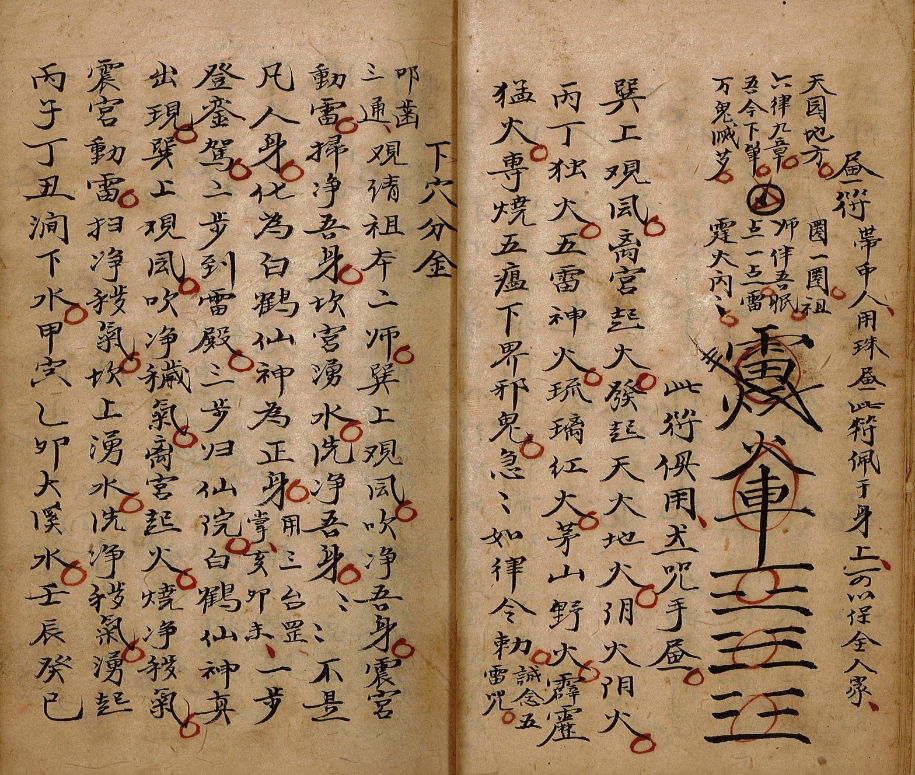 昼符帶中人用珠昼此符佩于身上可以保全人家
天园地方
六律九章
吾今下筆
万鬼滅茫
圆一圈祖
师伴吾眠
点一点雷
霆火内〻
火車三三三
此符俱用咒手昼
巽上观风离宫起火發起天火地火阴火阳火
丙丁独火五雷神火琉璃红火茅山野火霹靂
猛火專燒五瘟下界邪鬼急〻如律令勅誠念五雷咒
下穴分金
叩齒三通观请祖本二师巽上观风吹净吾身震宫
動雷掃净吾身坎宫湧水洗净吾身〻〻不是
凡人身化為白鶴仙神為正身用三台罡掌亥卯未一步
登銮駕二步到雷殿三步归仙院白鶴仙神真
出現巽上观风吹净穢氣离宫起火燒净穢氣
震宫動雷扫净穢氣坎上湧水洗净穢氣湧起
丙子丁丑涧下水甲寅乙卯大溪水壬辰癸巳